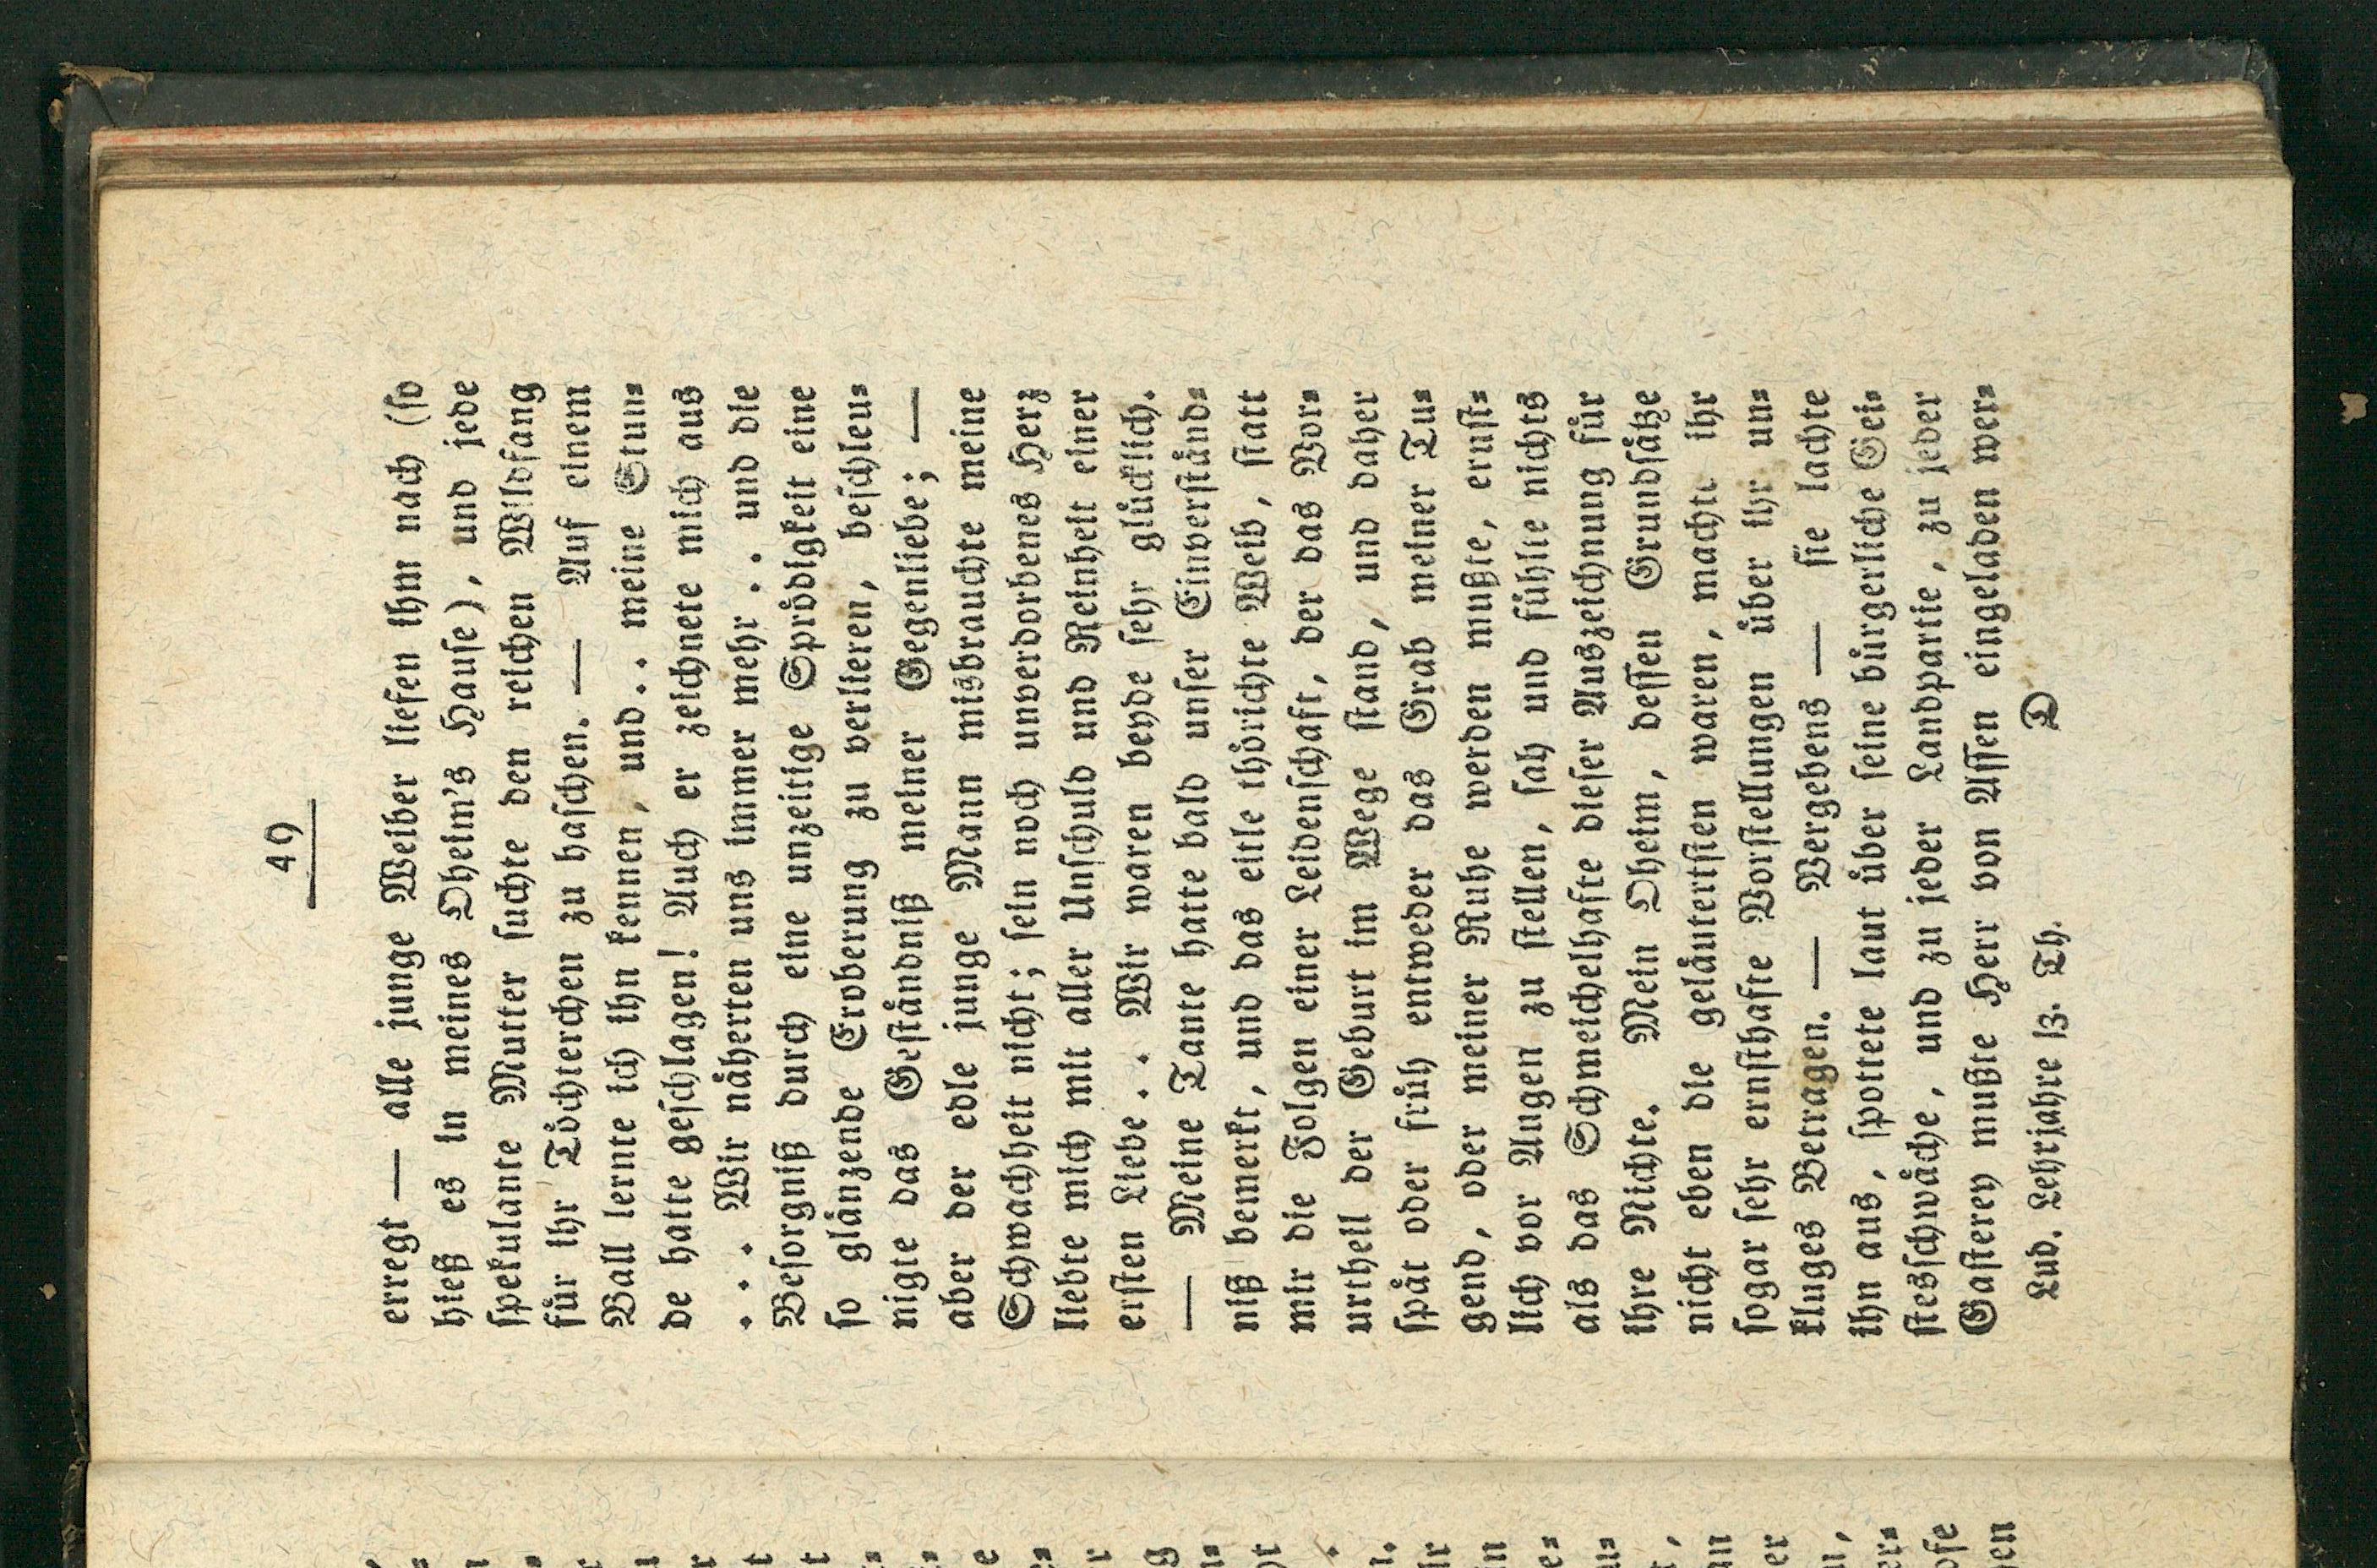 49
erregt — alle junge Weiber liefen ihm nach (ſo
hieß es in meines Oheim's Hauſe), und jede
ſpekulante Mutter ſuchte den reichen Wildfang
für ihr Töchterchen zu haſchen. — Auf einem
Ball lernte ich ihn kennen, und .. meine Stun⸗
de hatte geſchlagen! Auch er zeichnete mich aus
. . . Wir näherten uns immer mehr .. und die
Beſorgniß durch eine unzeitige Sprödigkeit eine
ſo glänzende Eroberung zu verlieren, beſchleu⸗
nigte das Geſtändniß meiner Gegenliebe; —
aber der edle junge Mann misbrauchte meine
Schwachheit nicht; ſein noch unverdorbenes Herz
liebte mich mit aller Unſchuld und Reinheit einer
erſten Liebe . . Wir waren beyde ſehr glücklich.
— Meine Tante hatte bald unſer Einverſtänd⸗
niß bemerkt, und das eitle thörichte Weib, ſtatt
mir die Folgen einer Leidenſchaft, der das Vor⸗
urtheil der Geburt im Wege ſtand, und daher
ſpät oder früh entweder das Grab meiner Tu⸗
gend, oder meiner Ruhe werden mußte, ernſt⸗
lich vor Augen zu ſtellen, ſah und fühlte nichts
als das Schmeichelhafte dieſer Auszeichnung für
ihre Nichte. Mein Oheim, deſſen Grundſätze
nicht eben die geläutertſten waren, machte ihr
ſogar ſehr ernſthafte Vorſtellungen über ihr un⸗
kluges Betragen. — Vergebens — ſie lachte
ihn aus, ſpottete laut über ſeine bürgerliche Gei⸗
ſtesſchwäche, und zu jeder Landpartie, zu jeder
Gaſterey mußte Herr von Aſſen eingeladen wer⸗
Lud. Lehrjahre 13. Th. D